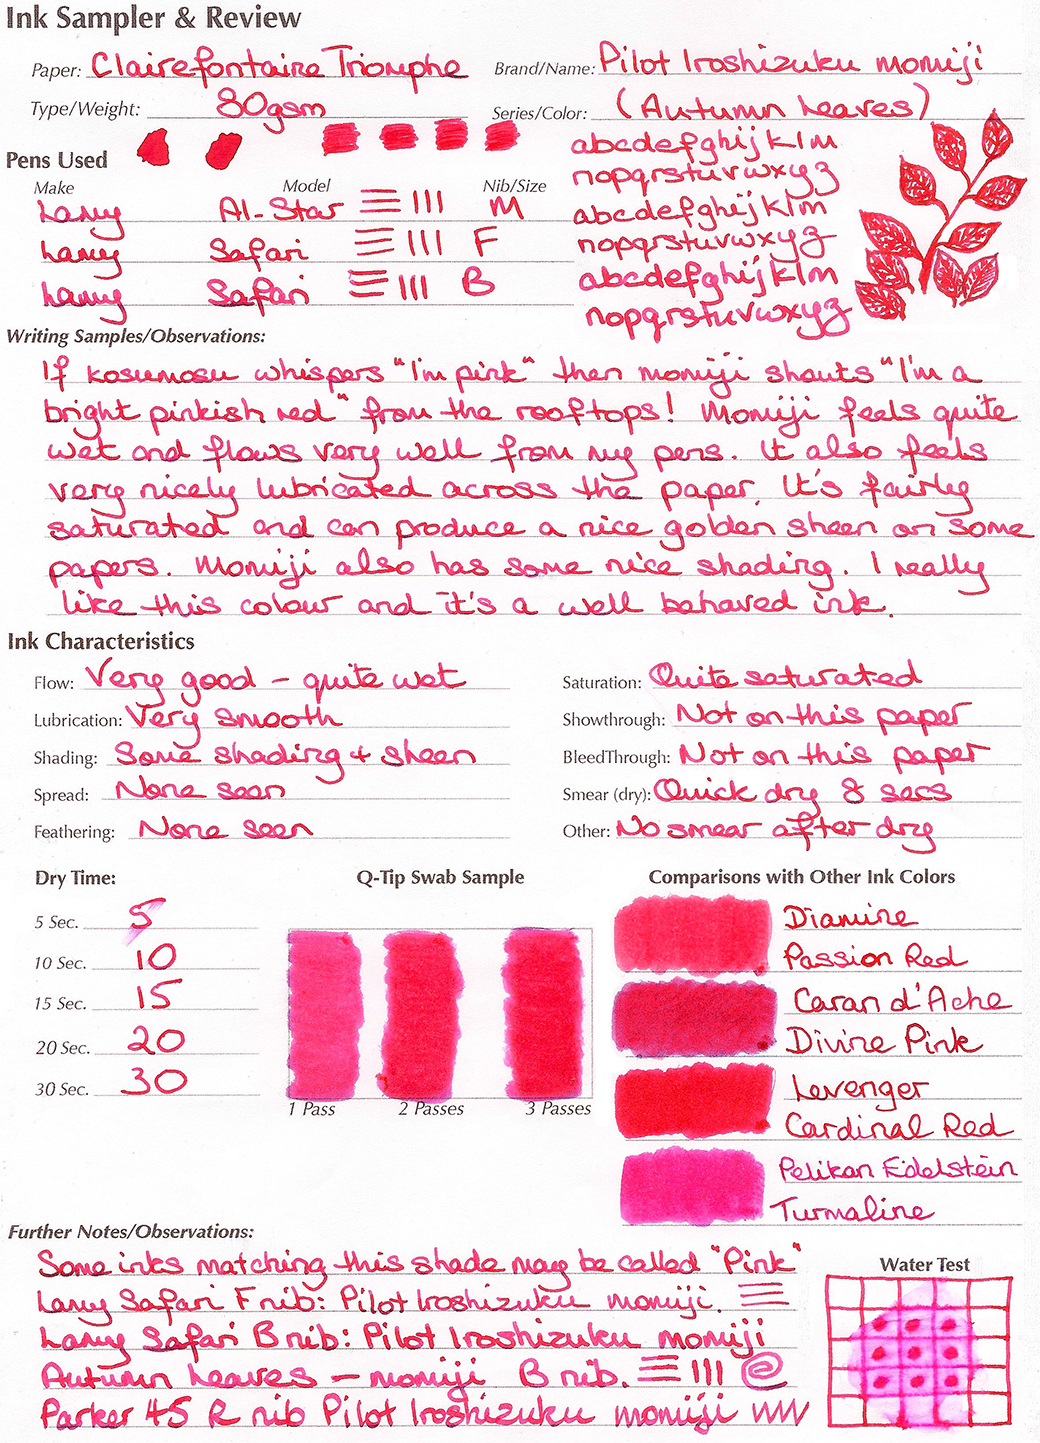 Ink Sampler & Review
Paper: Clairefontaine Triomphe Brand/Name: Pilot Iroshizuku momiji
Type/Weight: 80gsm Series/Color: (Autumn Leaves)
Pens Used
Make Model Nib/Size
Lamy Al-Star M
Lamy Safari F
Lamy Safari B
abcdefghijklm
nopqrstuvwxyz
abcdefghijklm
nopqrstuvwxyz
abcdefghijklm
nopqrstuvwxyz
Writing Samples/Observations:
If kosumosu whispers "I'm pink" then momiji shouts "I'm a
bright pinkish red" from the rooftops! Momiji feels quite
wet and flows very well from my pens. It also feels
very nicely lubricated across the paper. It's fairly
saturated and can produce a nice golden sheen on some
papers. Momiji also has some nice shading. I really
like this colour and it's a well bahaved ink.
Ink Characteristics
Flow: Very good - quite wet
Lubrication: Very smooth
Shading: Some shading + sheen
Spread: None seen
Feathering: None seen
Saturation: Quite saturated
Showthrough: Not on this paper
BleedThrough: Not on this paper
Smear (dry): Quick dry 8 secs
Other: No smear after dry
Dry Time:
5 Sec. 5
10 Sec. 10
15 Sec. 15
20 Sec. 20
30 Sec. 30
Q-Tip Swab Sample
1 Pass 2 Passes 3 Passes
Comparisons with Other Ink Colors
Diamine
Passion Red
Caran d'Ache
Divine Pink
Levenger
Cardinal Red
Pelikan Edelstein
Turmaline
Further Notes/Observations:
Some inks matching this shade may be called "Pink"
Lamy Safari F nib: Pilot Iroshizuku momiji.
Lamy Safari B nib: Pilot Iroshizuku momiji
Autumn Leaves - momiji B nib.
Parker 45 R nib Pilot Iroshizuku momiji
Water Test